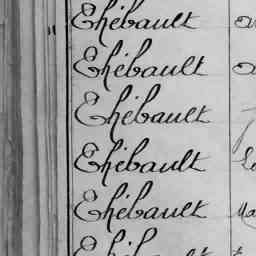 Thébault
Thébault
Thébault
Thébault
Thébault